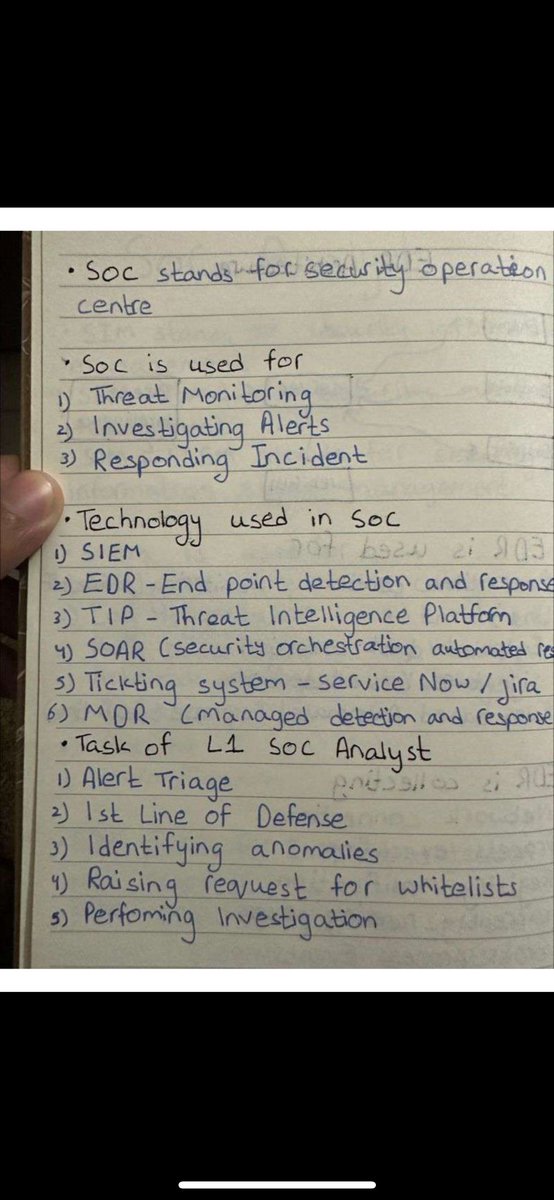 • SOC stands for security operation
centre
• SOC is used for
1) Threat Monitoring
2) Investigating Alerts
3) Responding Incident
• Technology used in SOC
1) SIEM
2) EDR - End point detection and response
3) TIP - Threat Intelligence Platform
4) SOAR (security orchestration automated res
5) Tickting system - Service Now / jira
6) MDR (Managed detection and response
• Task of L1 SOC Analyst
1) Alert Triage
2) 1st Line of Defense
3) Identifying anomalies
4) Raising request for whitelists
5) Perfoming Investigation